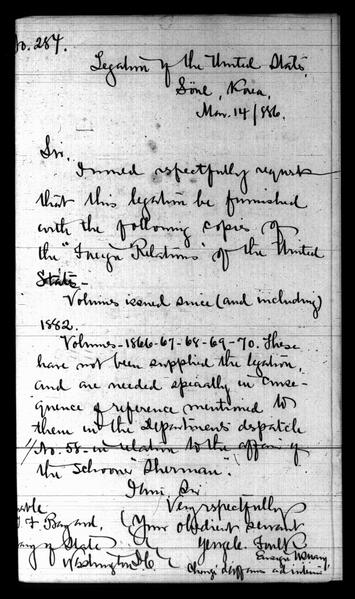 No. 284.
Legation of the United States,
Söul, Korea,
Mar. 14/886.
Sir.
I need respectfully request
that this legation be furnished
with the following copies of
the "Foreign Relations" of the United
States-
Volumes issued since (and including)
1882.
Volumes-1866-67-68-69-70. These
have not been supplied the legation,
and are needed specially in conse-
quence of reference mentioned to
them in the Department's despatch
No. 58- in relation to the affair of
the "Schooner Sherman".
I am, Sir
Very respectfully
T F Bayard, Your obedient servant
of State George Foulk
Washington D.C. Ensign U.S. Navy
Chargé d'affaires ad interim